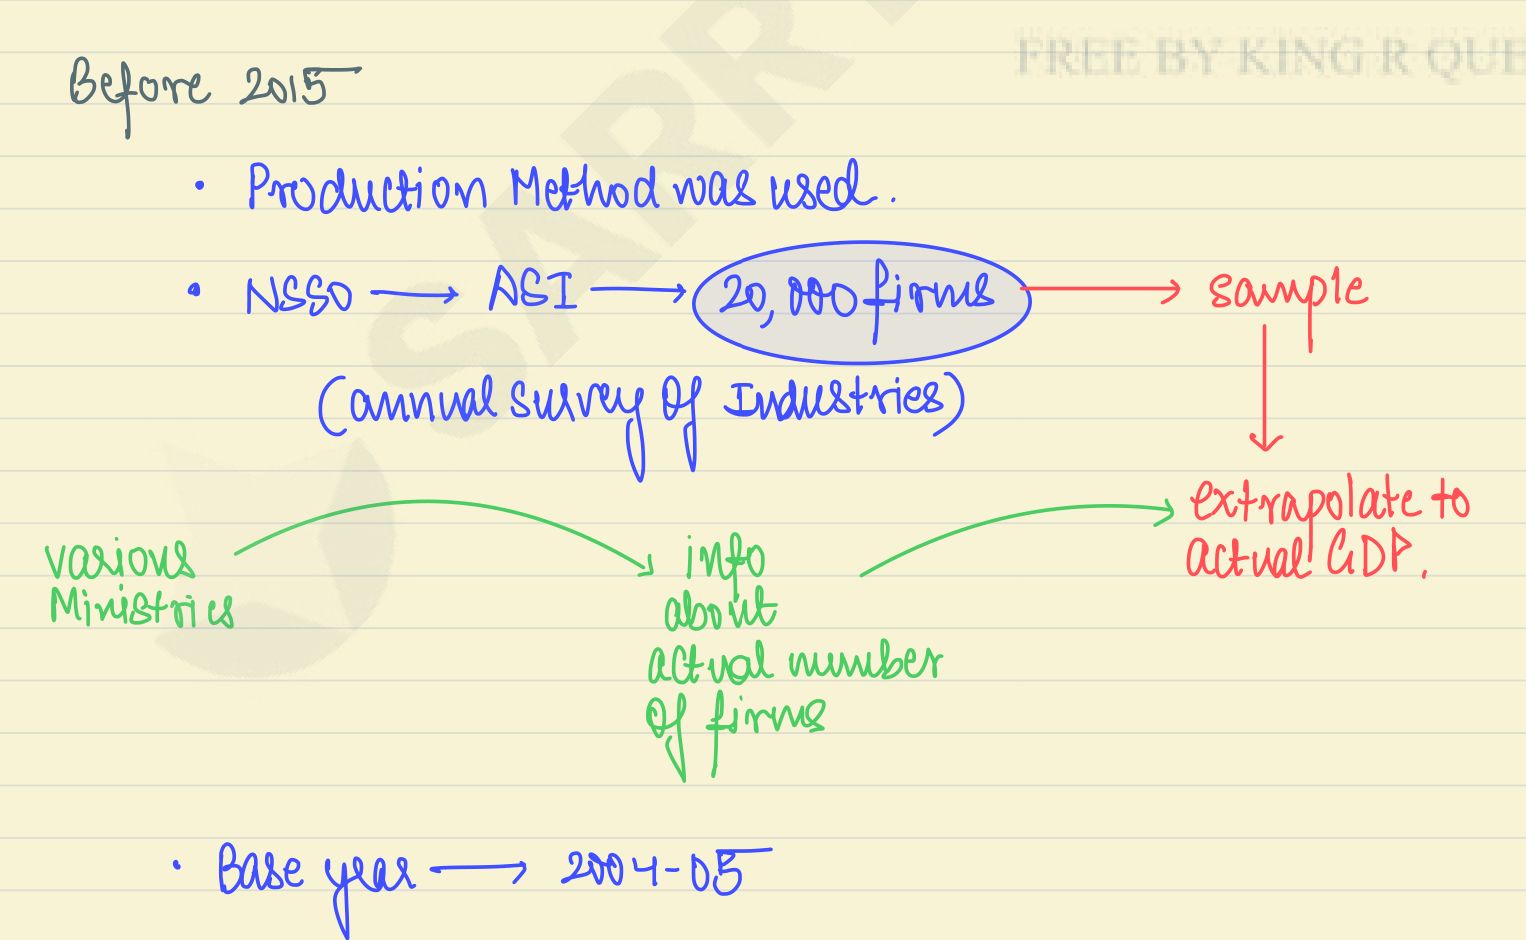 FREE BY KING R QUE
Before 2015
• Production Method was used.
• NSSO → ASI → 20,000 firms → sample
(annual survey of Industries)
extrapolate to
actual GDP.
various
Ministries
info
about
actual number
of firms
• Base year → 2004-05
SARR